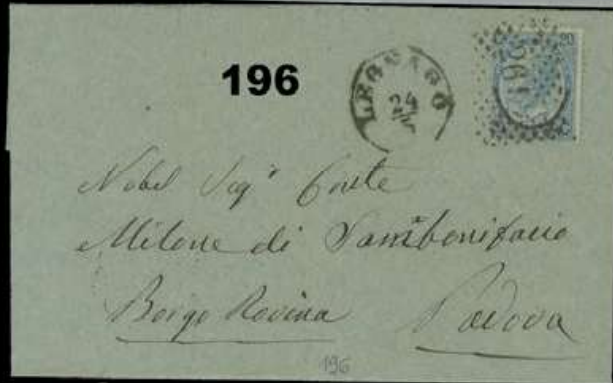 196
LEGNAGO
24
20
196
Nobel Sigr Conte
Milone di Sambonifacio
Borgo Rovina
Padova
196